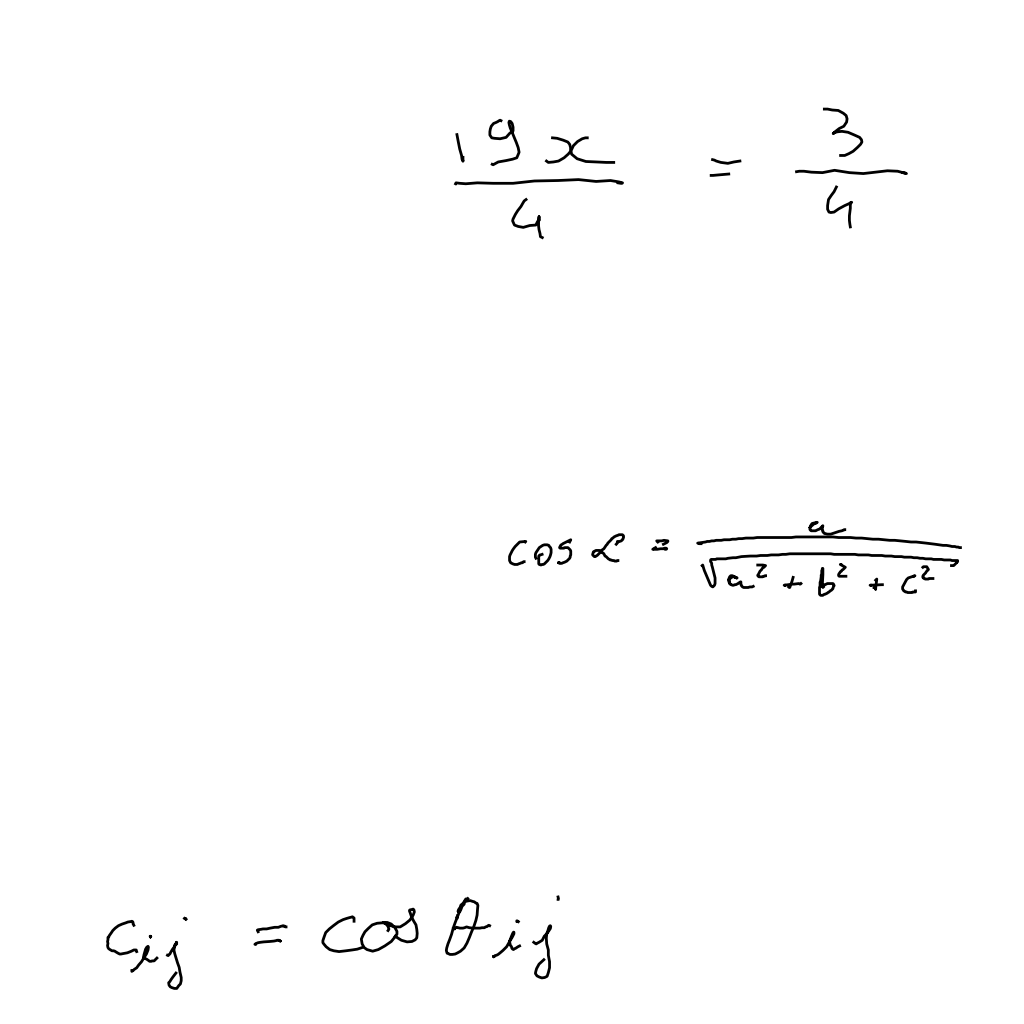 \frac{19x}{4} = \frac{3}{4}
\cos \alpha = \frac{a}{\sqrt{a^2 + b^2 + c^2}}
c_{ij} = \cos \theta_{ij}